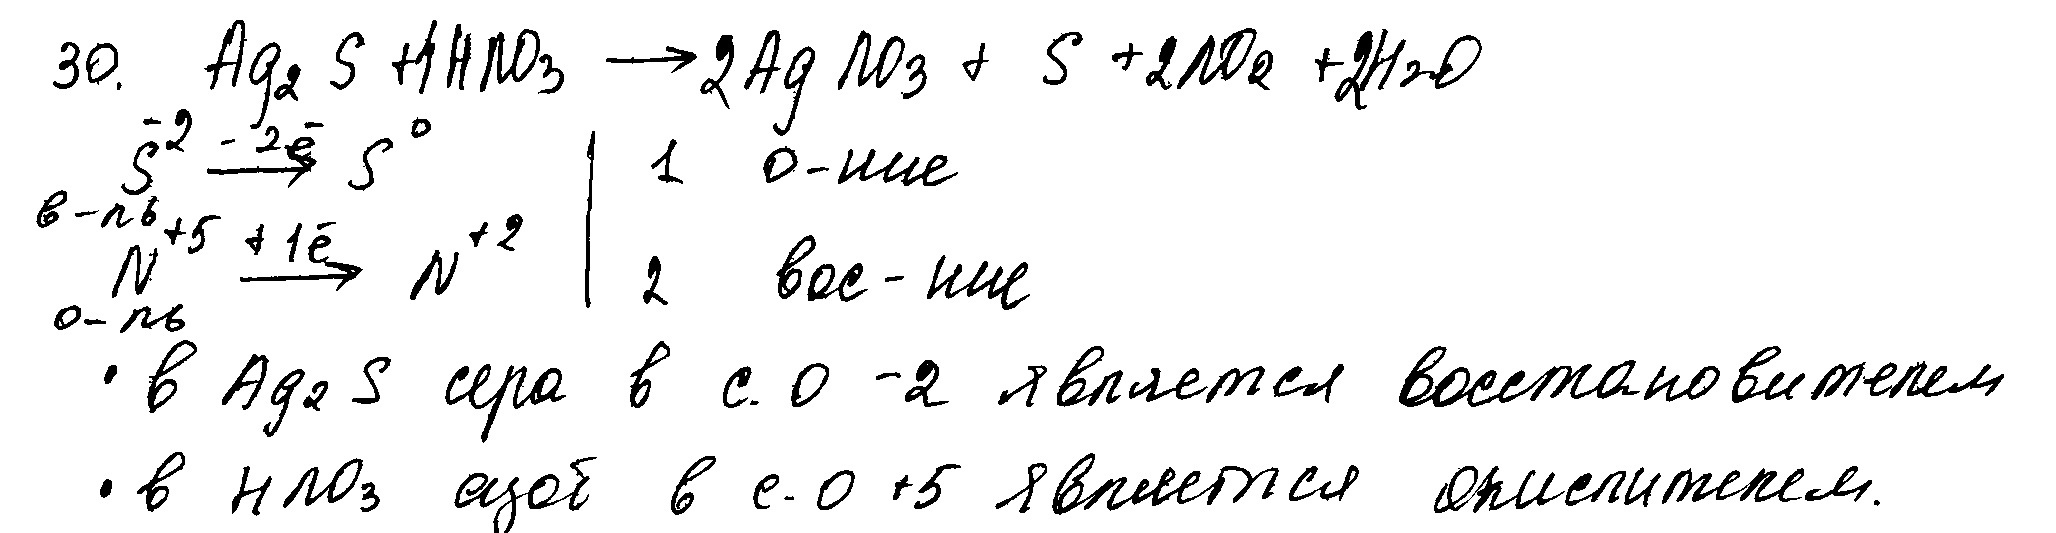 30. Ag₂S + 4HNO₃ → 2AgNO₃ + S + 2NO₂ + 2H₂O
S⁻² -2ē→ S⁰ | 1 о-ние
в-ль
N⁺⁵ +1ē→ N⁺² | 2 вос-ние
о-ль
• в Ag₂S сера в с.о -2 является восстановителем
• в HNO₃ азот в с.о +5 является окислителем.